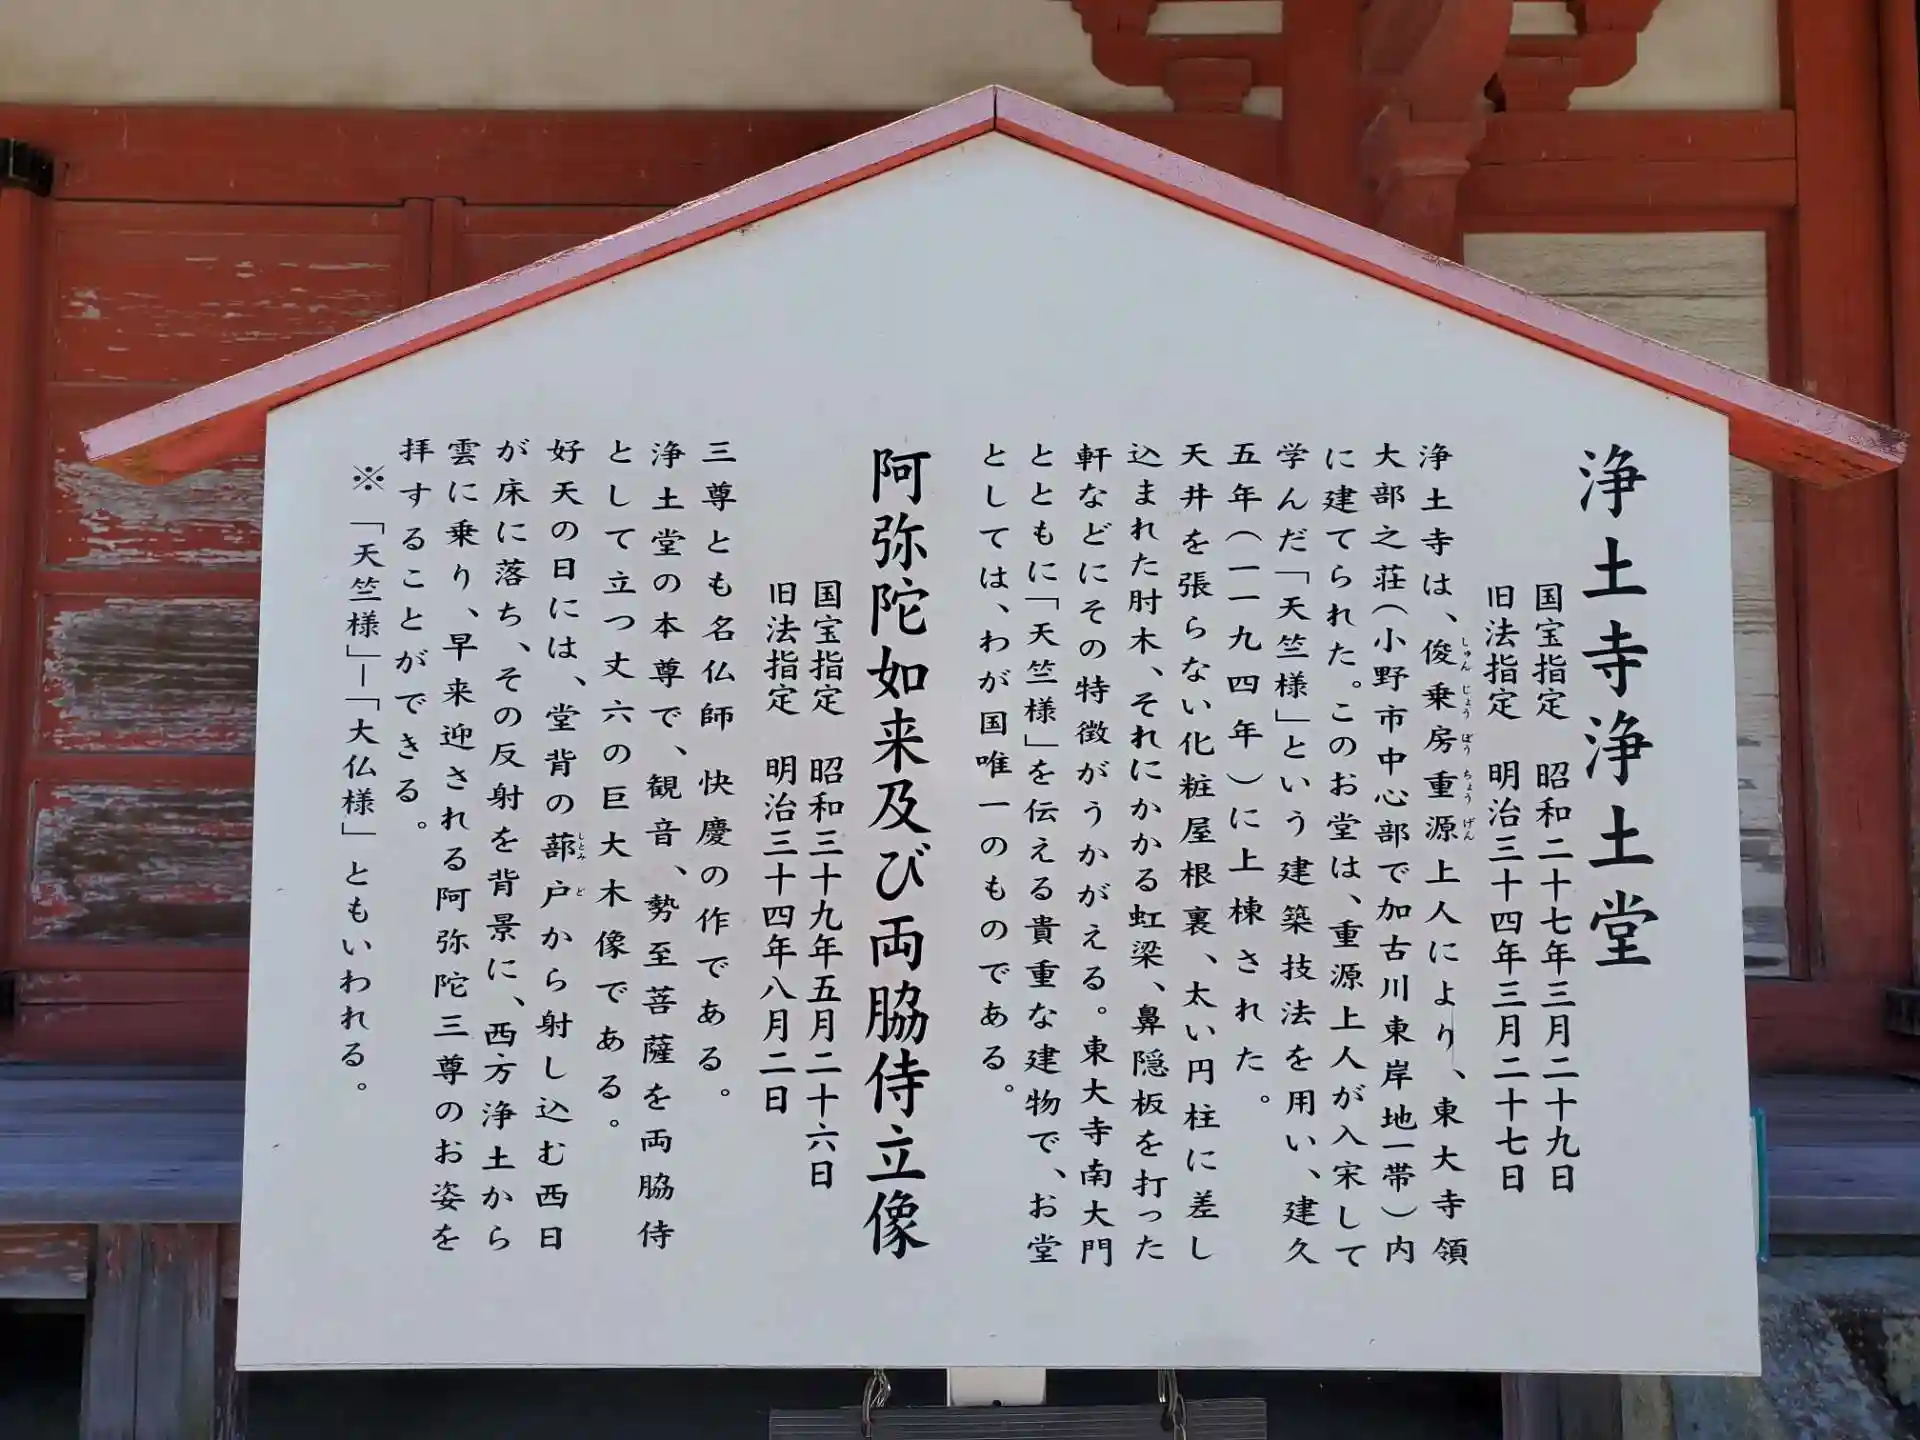 浄土寺浄土堂
国宝指定 昭和二十七年三月二十九日
旧法指定 明治三十四年三月二十七日
浄土寺は、俊乗房重源上人により、東大寺領
しゅん じょう ぼう ちょう げん
大部之荘(小野市中心部で加古川東岸地一帯)内
に建てられた。このお堂は、重源上人が入宋して
学んだ「天竺様」という建築技法を用い、建久
五年(一一九四年)に上棟された。
天井を張らない化粧屋根裏、太い円柱に差し
込まれた肘木、それにかかる虹梁、鼻隠板を打った
軒などにその特徴がうかがえる。東大寺南大門
とともに「天竺様」を伝える貴重な建物で、お堂
としては、わが国唯一のものである。
阿弥陀如来及び両脇侍立像
国宝指定 昭和三十九年五月二十六日
旧法指定 明治三十四年八月二日
三尊とも名仏師 快慶の作である。
浄土堂の本尊で、観音、勢至菩薩を両脇侍
として立つ丈六の巨大木像である。
好天の日には、堂背の蔀戸から射し込む西日
しとみ ど
が床に落ち、その反射を背景に、西方浄土から
雲に乗り、早来迎される阿弥陀三尊のお姿を
拝することができる。
※「天竺様」―「大仏様」ともいわれる。